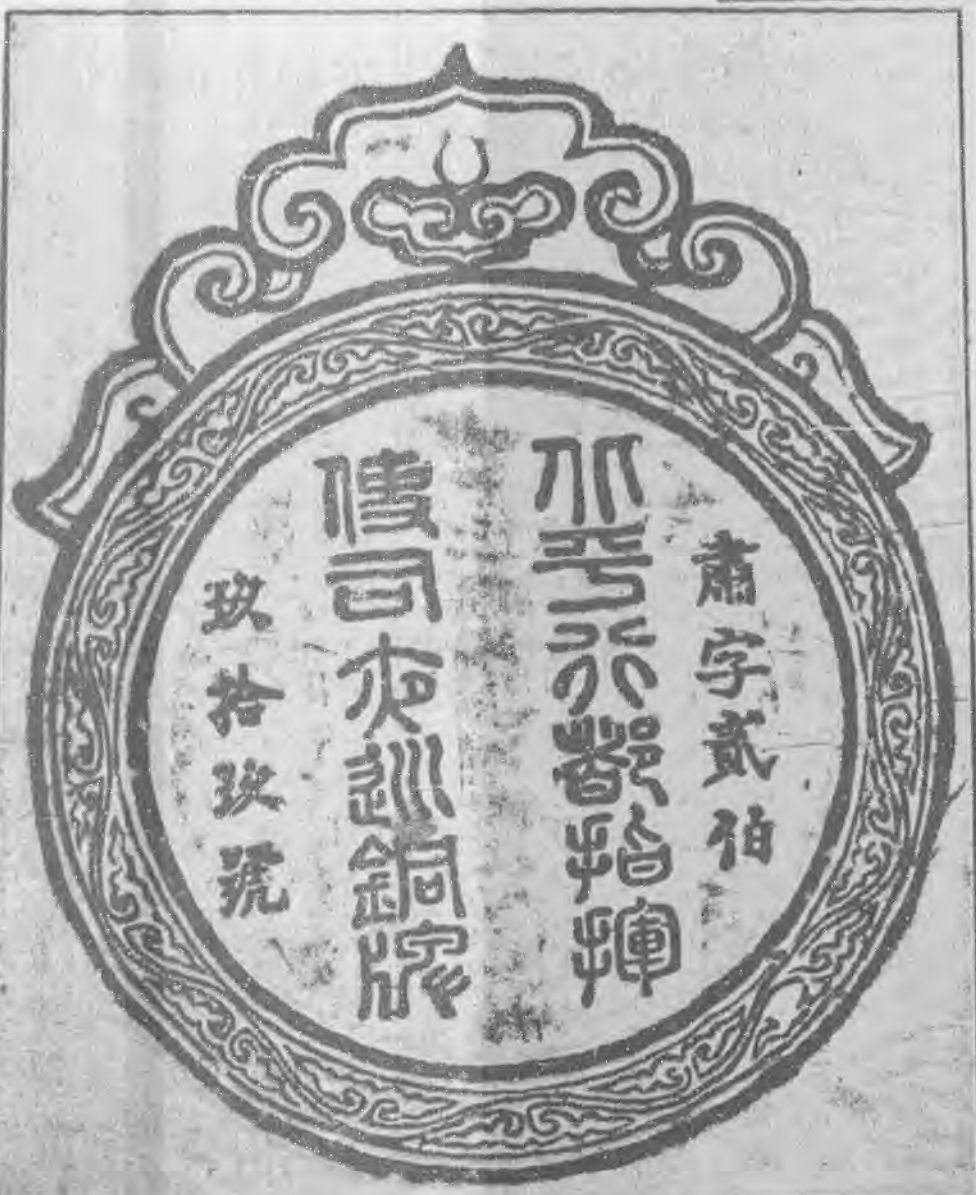 肅字貳伯
北平行都指揮
使司夜巡銅牌
玖拾玖號